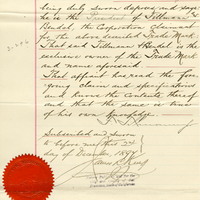 being duly sworn deposes and says
he is the President of Tillmann &
Bendel, the Corporation Claimant
for the above described Trade Mark
That said Tillmann & Bendel is the
exclusive owner of the Trade Mark
and name aforesaid
That affiant has read the fore-
going claim and specifications
and knows the contents thereof
and that the same is true
of his own knowledge
Subscribed and sworn
to before me this 22
day of December 189